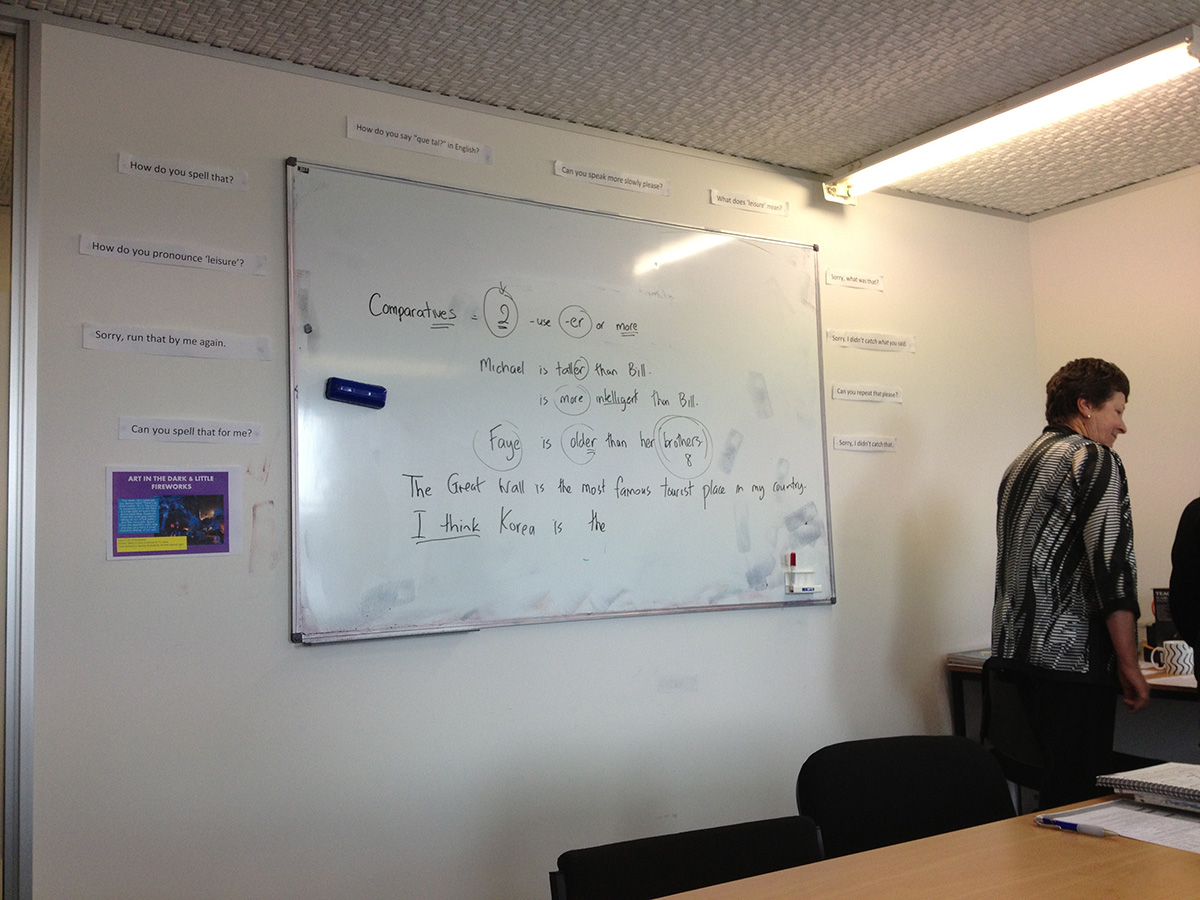 How do you say "que tal?" in English?
How do you spell that?
Can you speak more slowly please?
What does 'leisure' mean?
How do you pronounce 'leisure'?
Sorry, what was that?
Sorry, run that by me again.
Sorry, I didn't catch what you said.
Can you repeat that please?
Can you spell that for me?
Sorry, I didn't catch that.
Comparatives = 2 - use -er or more
Michael is taller than Bill.
is more intelligent than Bill.
Faye is older than her brothers
8
The Great Wall is the most famous tourist place in my country.
I think Korea is the
ART IN THE DARK & LITTLE
FIREWORKS